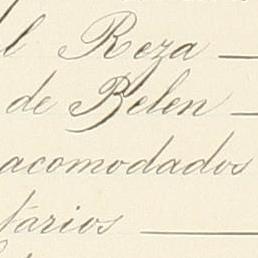 l Reza
de Belen
acomodados
tarios